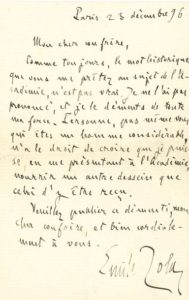 Paris 23 décembre 96
Mon cher confrère,
Comme toujours, le mot historique
que vous me prêtez au sujet de l'A-
cadémie, n'est pas vrai. Je ne l'ai pas
prononcé, et je le démens de toute
ma force. Personne, pas même vous
qui êtes un homme considérable,
n'a le droit de croire que je puis-
se, en me présentant à l'Académie,
nourrir un autre dessein que
celui d'y être reçu.
Veuillez publier ce démenti, mon
cher confrère, et bien cordiale-
ment à vous.
Emile Zola